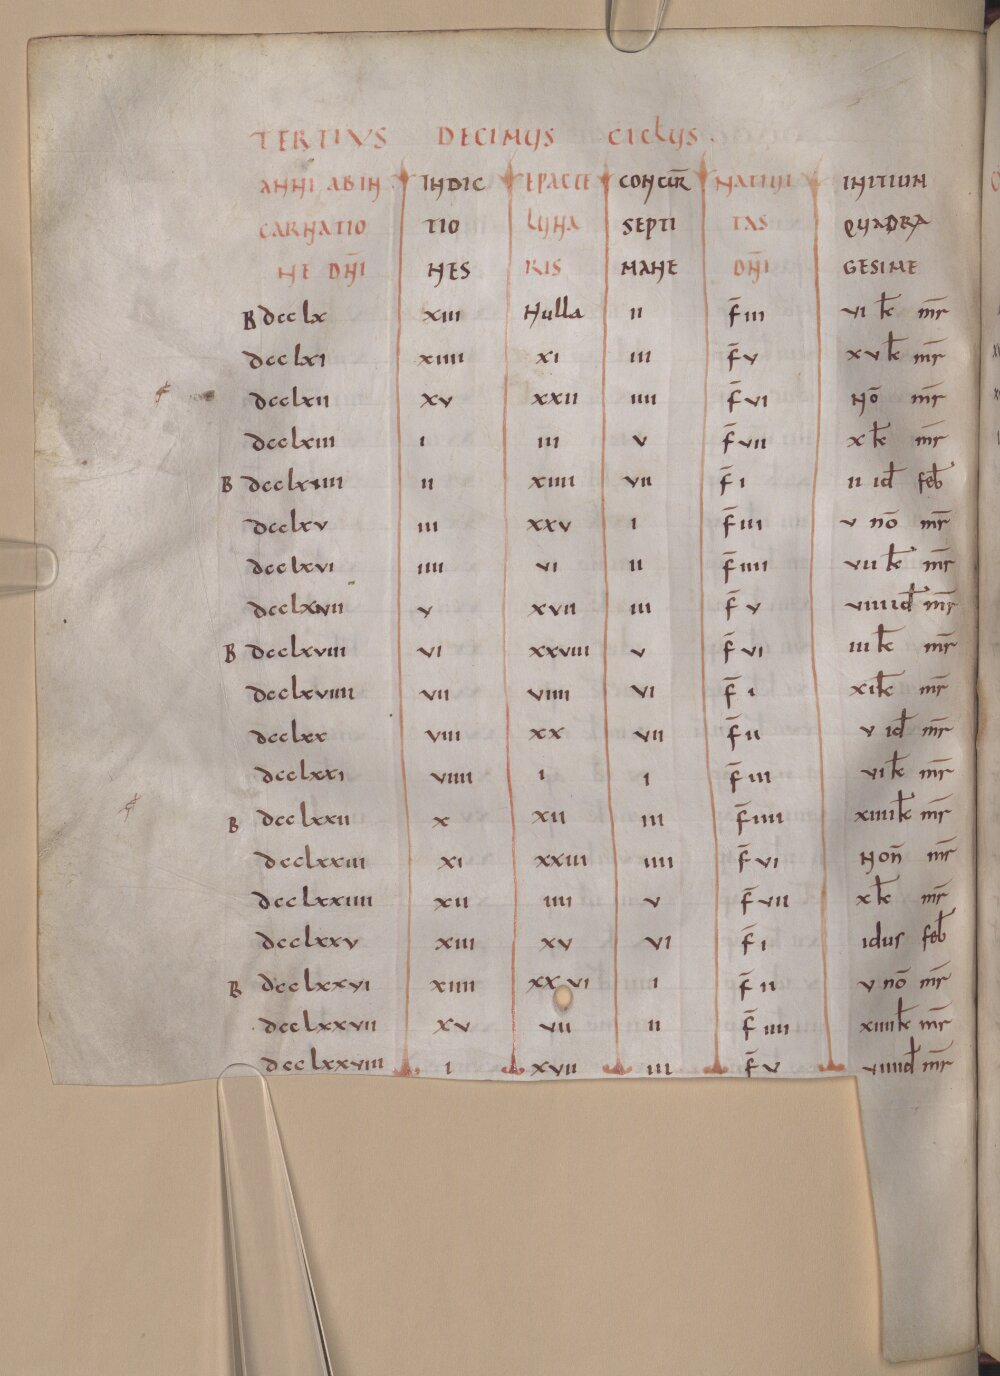 TERTIVS DECIMVS CICLVS.
ANNI AB IN INDIC EPACTE CONCUR̄ NATIVI INITIUM
CARNATIO TIO LUNA SEPTI TAS QUADRA
NE DN̄I NES RIS MANE DN̄I GESIME
B dcclx xiii Nulla ii f̄ iii vi kł mr̄
dcclxi xiiii xi iii f̄ v xv kł mr̄
dcclxii xv xxii iiii f̄ vi Nō mr̄
dcclxiii i iii v f̄ vii x kł mr̄
B dcclxiiii ii xiiii vii f̄ i ii id feb
dcclxv iii xxv i f̄ iii v nō mr̄
dcclxvi iiii vi ii f̄ iiii vii kł mr̄
dcclxvii v xvii iii f̄ v viiii id mr̄
B dcclxviii vi xxviii v f̄ vi iii kł mr̄
dcclxviiii vii viiii vi f̄ i xi kł mr̄
dcclxx viii xx vii f̄ ii v id mr̄
dcclxxi viiii i i f̄ iii vi kł mr̄
B dcclxxii x xii iii f̄ iiii xiiii kł mr̄
dcclxxiii xi xxiii iiii f̄ vi Non̄ mr̄
dcclxxiiii xii iiii v f̄ vii x kł mr̄
dcclxxv xiii xv vi f̄ i idus feb
B dcclxxvi xiiii xxvi i f̄ ii v nō mr̄
dcclxxvii xv vii ii f̄ iiii xiiii kł mr̄
dcclxxviii i xvii iii f̄ v viiii id mr̄